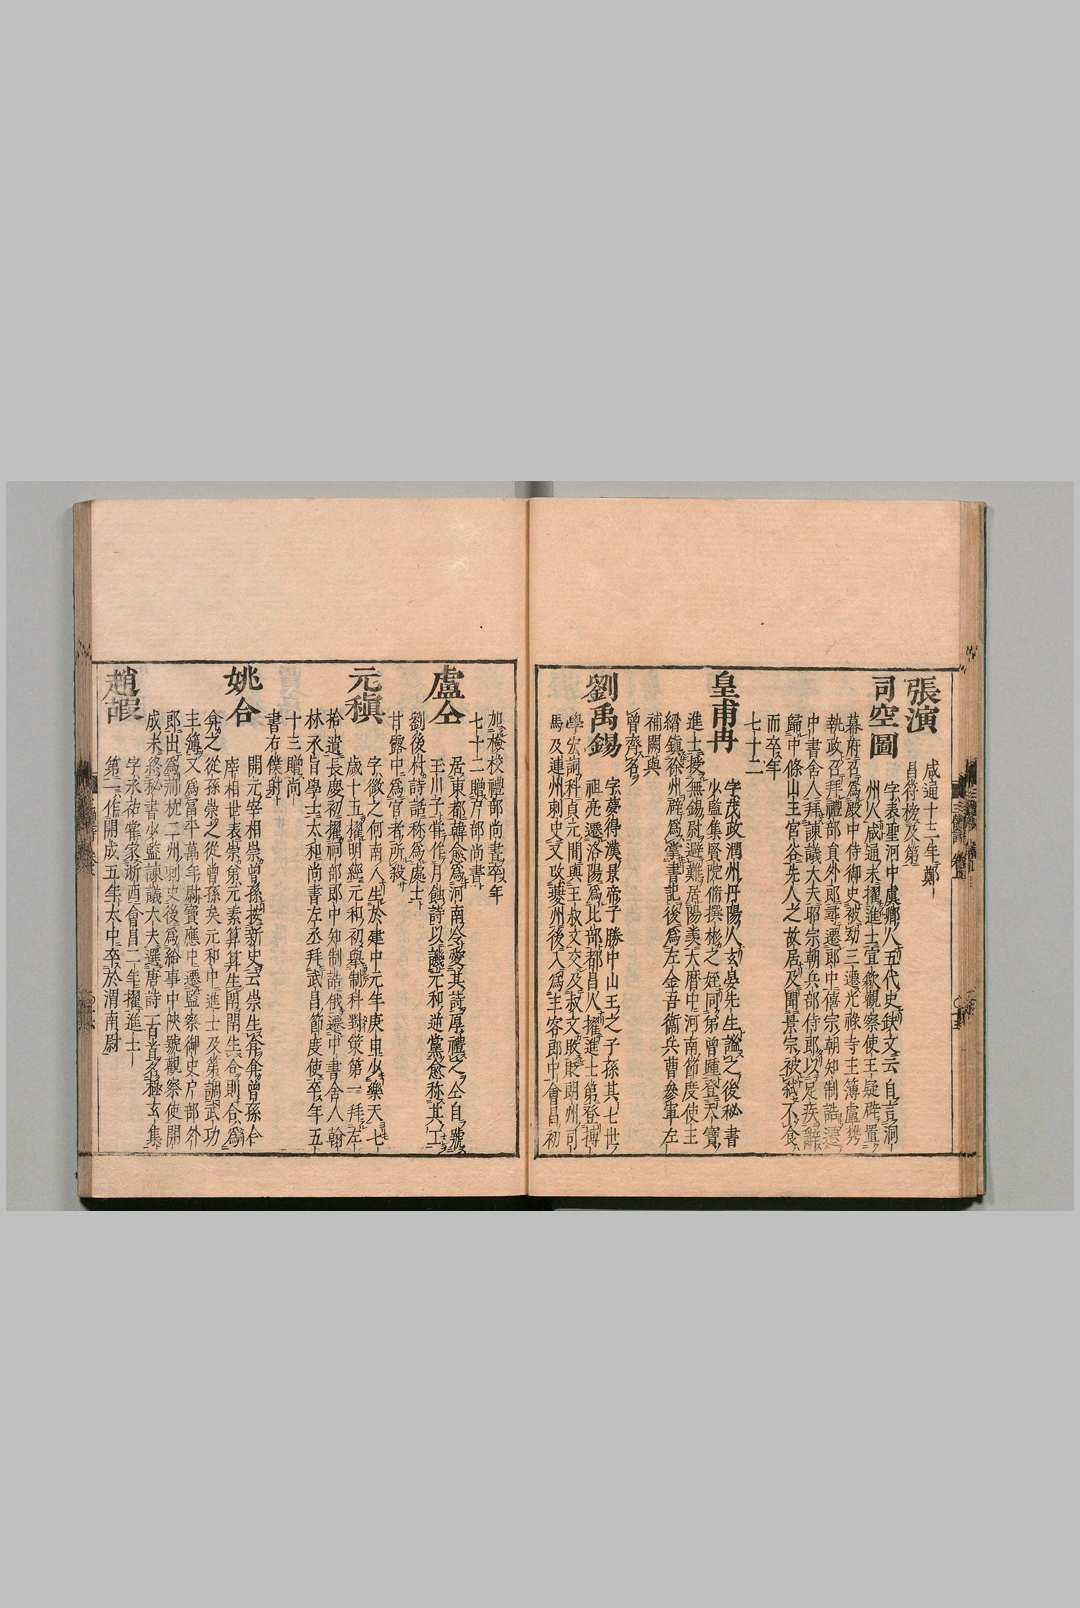 張演
咸通十三年鄭
昌符榜及第
司空圖
字表聖河中虞鄉人五代史缺文云自言洞
州人咸通末擢進士宣歙觀察使王疑辟置
幕府召爲殿中侍御史被劾三遷光祿寺主簿盧携
執政召拜禮部員外郎尋遷郎中僖宗朝知制誥遷
中書舍人拜諫議大夫昭宗朝兵部侍郎以足疾辭
歸中條山王官谷先人之故居及聞景宗被弑不食
而卒年
七十二
皇甫冉
字茂政潤州丹陽人玄晏先生謐之後秘書
少監集賢院脩撰彬之姪同弟曾踵登天寶
進士授無錫尉避難居陽羨大曆中河南節度使王
縉鎮徐州辟爲掌書記後爲左金吾衞兵曹參軍左
補闕與
曾齊名
劉禹錫
字夢得漢景帝子勝中山王之子孫其七世
祖亮遷洛陽爲北部都昌人擢進士第登博
學宏詞科貞元間與王叔文交及叔文敗貶朗州司
馬及連州刺史又改夔州後入爲主客郎中會昌初
加檢校禮部尚書卒年
七十二贈戸部尚書
盧仝
居東都韓愈爲河南令愛其詩厚禮之仝自號
玉川子嘗作月蝕詩以譏元和逆黨愈称其工
劉後村詩話称爲處士
甘露中爲官者所殺
元稹
字微之何南人生於建中元年庚申少樂天七
歲十五擢明經元和初擧制科對策第一拜左
拾遺長慶初擢祠部郎中知制誥俄遷中書舍人翰
林承旨學士太和尚書左丞拜武昌節度使卒年五
十三贈尚
書右僕射
姚合
開元宰相崇曾孫按新史云崇生弇弇曾孫合
席相世表崇弟元素算算生閈閈生合則合爲
弇之從孫崇之從曾孫矣元和中進士及第調武功
主簿又爲富平萬年尉寶應中遷監察御史戸部外
郎出爲荊杭二州刺史後爲給事中陝虢觀察使開
成末終秘書少監諫議大夫選唐詩一百首名極玄集
趙嘏
字承祐嘗家浙西會昌二年擢進士
第一作開成五年太中卒於渭南尉